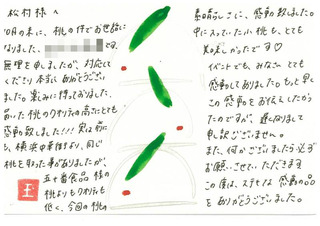 松村様へ
10月の末に、桃の件でお世話に
なりました、です。
無理を申しましたが、対応して
くださり本当にありがとうござい
ました。楽しみに待っておりました、
届いた桃のクオリティの高さにとても
感動致しました!!!実は前に
も、横浜中華街より、同じ
桃を取った事がありましたが、
五十番食品様の
桃よりもクオリティも
低く、今回の桃の
素晴らしさに、感動致しました。
中に入っていた小桃も、とても
美味しかったです♡
イベントでも、みなさん とても
感動しておりました。もっと早く
この感動をお伝えしたかっ
たのですが、遅くなりまして
申し訳ございません。
また、何かございましたら必ず
お願いさせていただきます
この度は、ステキな感動の品
をありがとうございました。